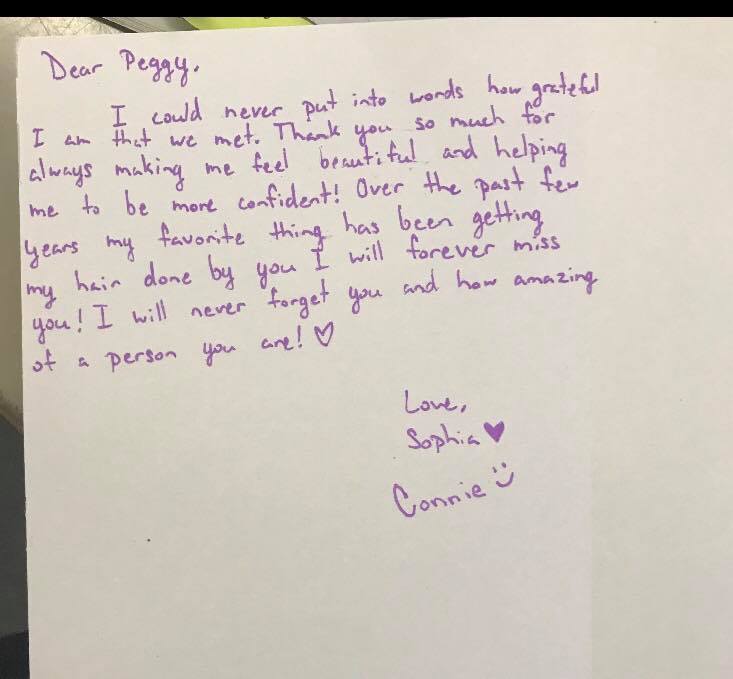 Dear Peggy,
I could never put into words how grateful
I am that we met. Thank you so much for
always making me feel beautiful and helping
me to be more confident! Over the past few
years my favorite thing has been getting
my hair done by you I will forever miss
you! I will never forget you and how amazing
of a person you are! ♡
Love,
Sophia ♥
Connie :)